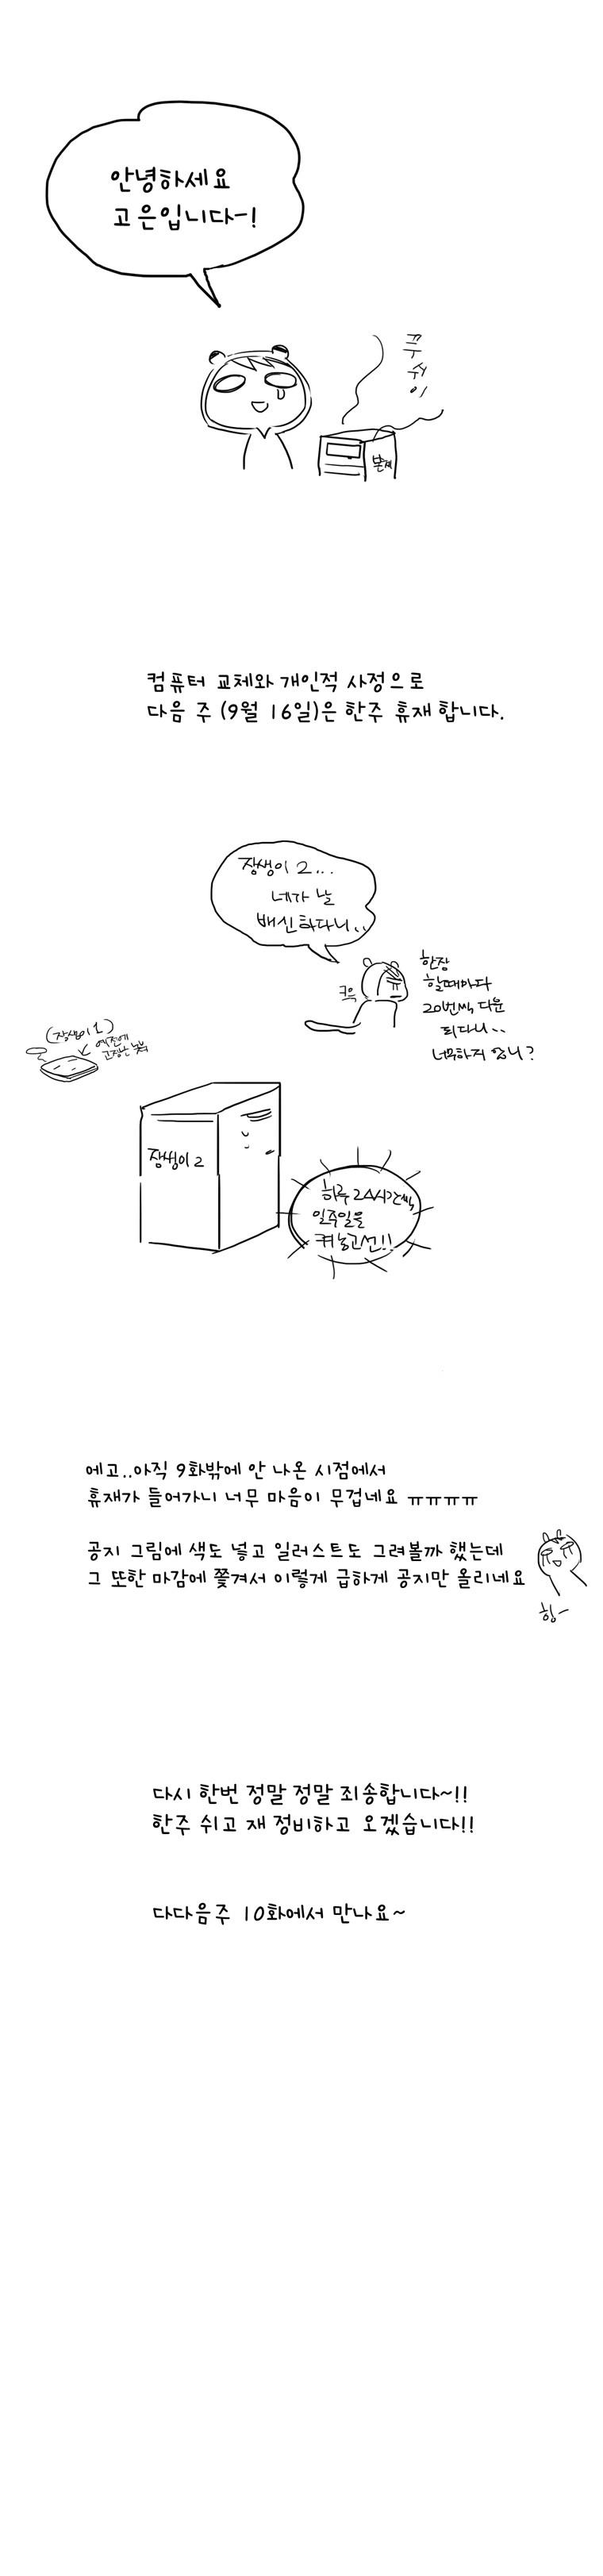 안녕하세요
고은입니다~!
푸쉬이
본체
컴퓨터 교체와 개인적 사정으로
다음 주 (9월 16일)은 한주 휴재 합니다.
장생이 2...
네가 날
배신하다니..
크윽
한장
할때마다
20번씩 다운
되다니..
너무하지 않니?
(장생이 1)
예전에
고장난 노트북
장생이 2
하루 24시간씩
일주일을
켜놓고선!!
에고..아직 9화밖에 안 나온 시점에서
휴재가 들어가니 너무 마음이 무겁네요 ㅠㅠㅠㅠ
공지 그림에 색도 넣고 일러스트도 그려볼까 했는데
그 또한 마감에 쫓겨서 이렇게 급하게 공지만 올리네요
힝-
다시 한번 정말 정말 죄송합니다~!!
한주 쉬고 재 정비하고 오겠습니다!!
다다음주 10화에서 만나요~